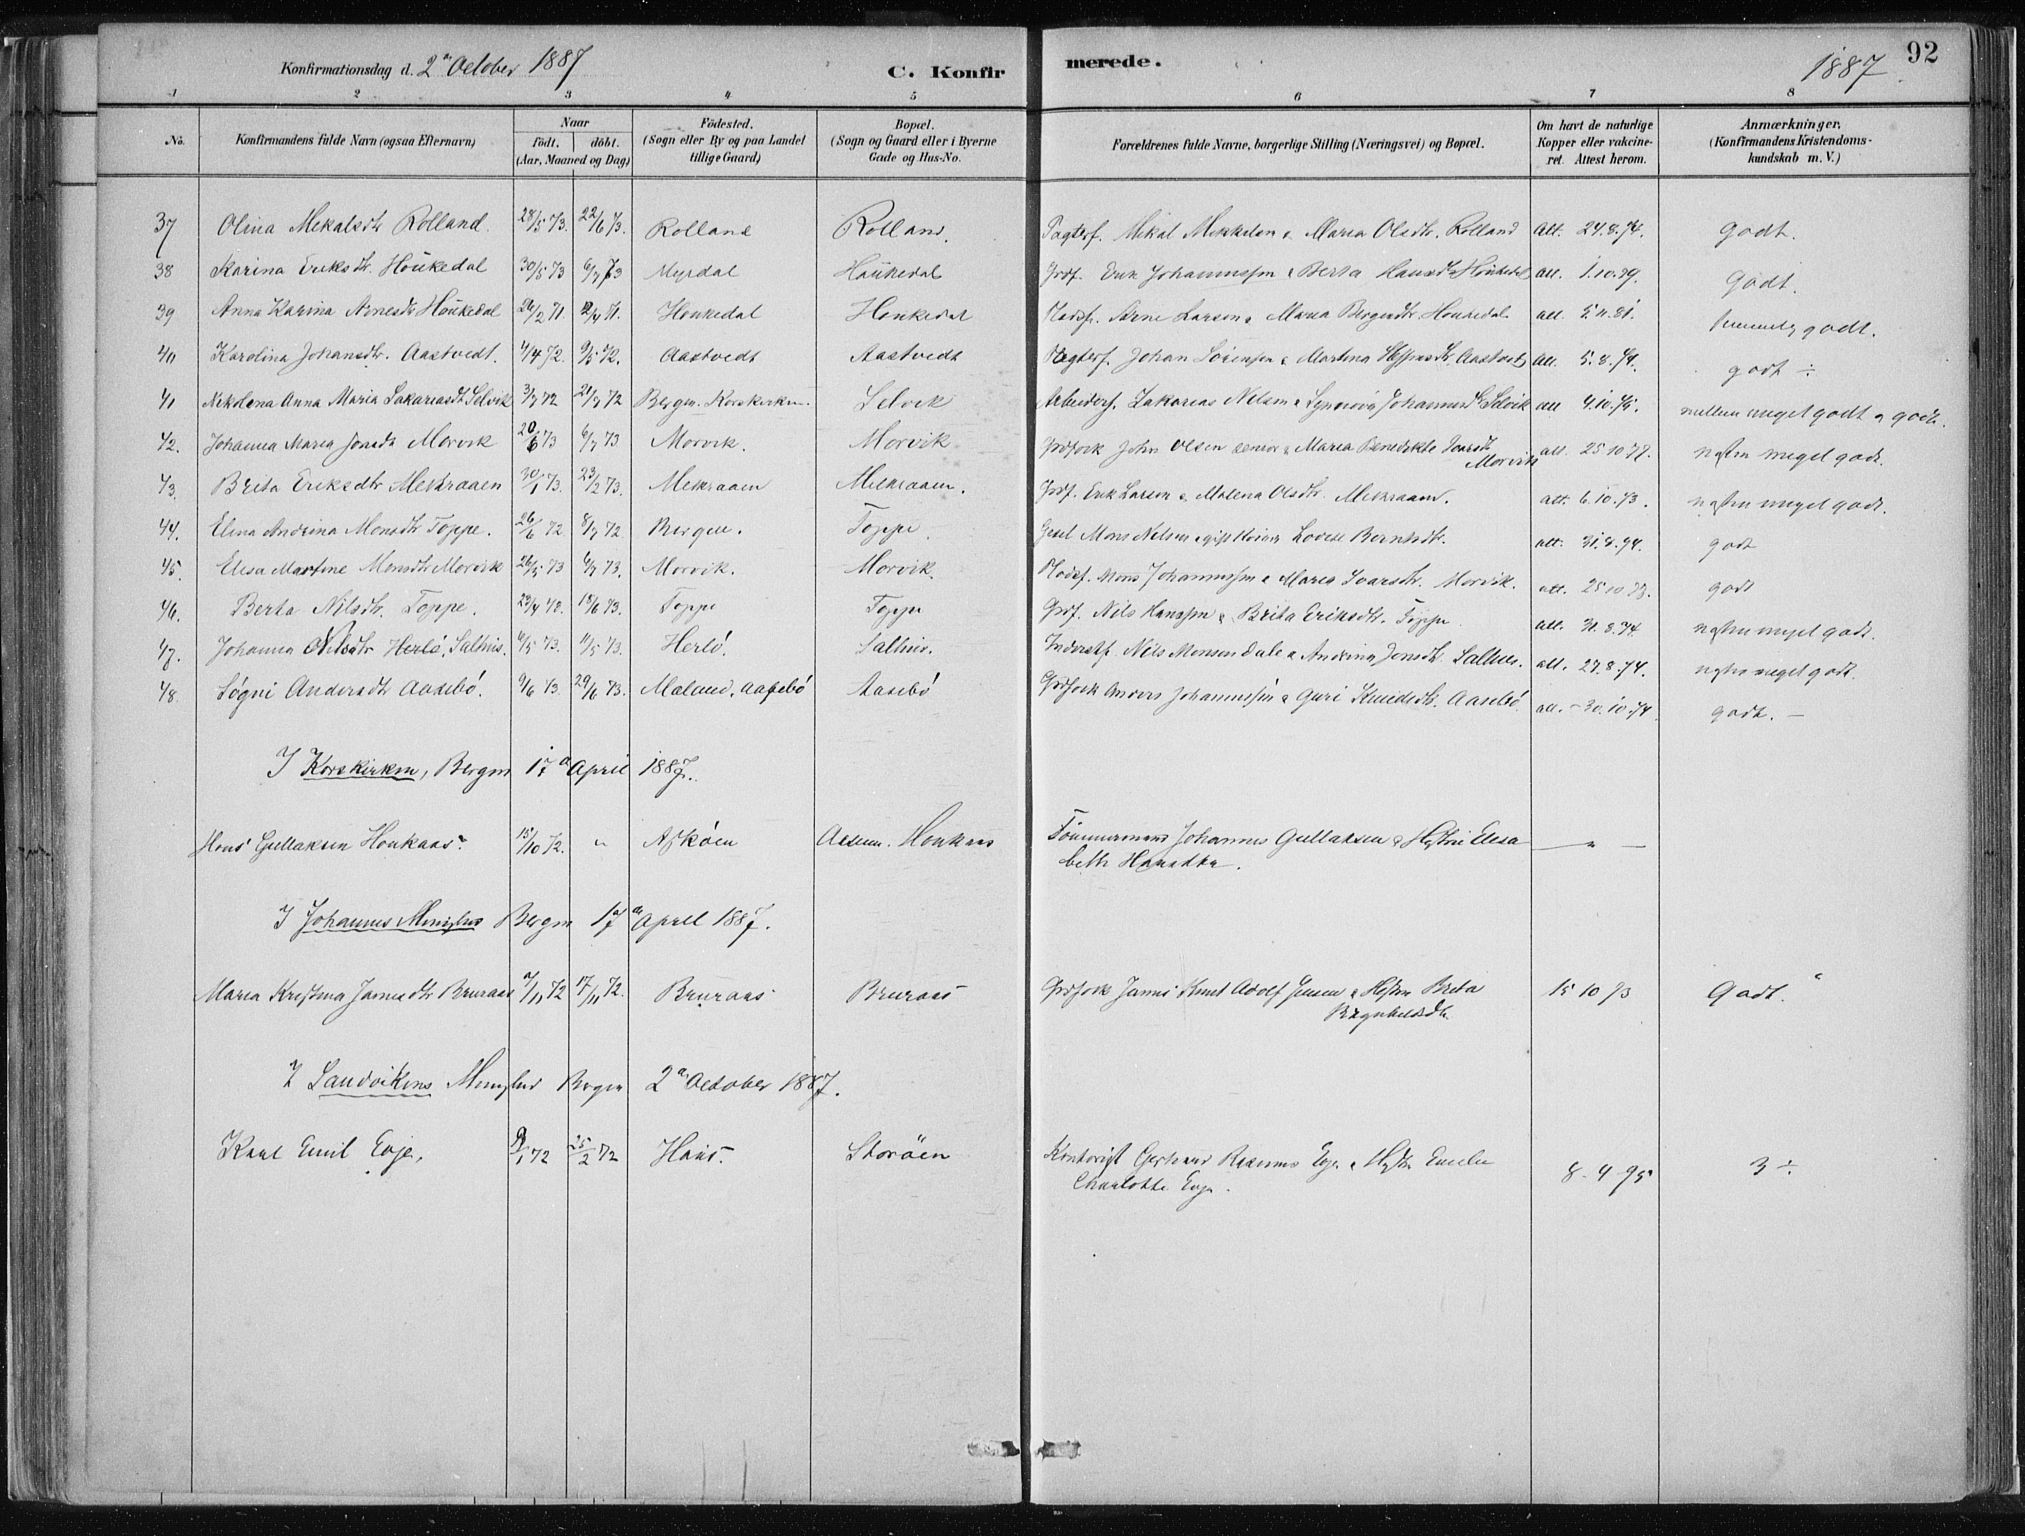 Konfirmationsdag d. 2 October 1887
C. Konfirmerede.
1887
92
1 2 3 4 5 6 7 8
No.
Konfirmandens fulde Navn (ogsaa Efternavn)
Naar
födt. döbt.
(Aar, Maaned og Dag)
Födested.
(Sogn eller By og paa Landet
tillige Gaard)
Bopæl.
(Sogn og Gaard eller i Byerne
Gade og Hus-No.
Forældrenes fulde Navne, borgerlige Stilling (Næringsvei) og Bopæl.
Om havt de naturlige
Kopper eller vakcine-
ret. Attest herom.
Anmærkninger.
(Konfirmandens Kristendoms-
kundskab m. V.)
37 Olina Mekalsdtr Rolland. 28/5 73. 22/6 73. Rolland Rolland. Pagterf. Mikal Mekkelsen & Maria Olsdtr. Rolland Att. 24.8.74. Godt.
38 Karina Eriksdtr. Houkedal 30/5 73 6/7 73 Myrdal Houkedal Grdf. Erik Johannessen & Berta Hansdtr Houkedal att. 1.10.79. Godt.
39 Anna Karina Arnesdtr Houkedal 26/2 71. 12/4 71. Houkedal Houkedal Pladsf. Arne Larsen & Maria Bergesdtr. Houkedal att 5.11.81. godt.
40 Karolina Johansdtr. Aastvedt. 4/4 72. 9/5 72. Aastvedt Aastvedt Pagterf. Johan Sörensen & Martina Aastvedt att. 5.8.74. godt ÷
41 Nikolena Anna Maria Sakariasdtr Selvik 3/7 72 21/7 72 Bergen. Korskirken. Selvik Arbeiderf. Zakarias Nilsen & Synneva Johannesdtr Selvik att 4.10.75. mellem meget godt & godt.
42. Johanna Maria Jonsdtr Morvik 20/6 73 6/7 73 Morvik. Morvik Grdfolk John Olsen senior & Maria Benedikte Ivarsdtr Morvik att. 25.10.77. næsten meget godt.
43. Brita Eriksdtr Mekraaen 30/1 73. 23/2 73. Mekraaen Mekraaen. Grdf. Erik Larsen & Malena Olsdtr. Mekraaen. att. 6.10.73. næsten meget godt.
44. Elina Andrina Monsdtr Toppe. 26/6 72 8/7 72 Bergen. Toppe. Mons Nilsen Lovise Berntsdtr. att. 31.8.74. godt
45. Elesa Martine Monsdtr Morvik 26/5 73 6/7 73. Morvik. Morvik. Pladsf. Mons Johannessen & Maria Ivarsdtr. Morvik. att. 25.10.73. godt
46. Berta Nilsdtr. Toppe. 13/6 73. Toppe Toppe Grdf. Nils Hanssen & Brita Eriksdtr. Toppe. att. 31.8.74 næsten meget godt.
47. Johanna Nilsdtr Herlö, Salhus. 4/5 73. 11/5 73. Herlö. Salhus. Inderstf. Nils Monsen Dale & Andrina Jonsdtr. Salhus. att. 27.8.74. næsten meget godt.
48. Søgni Andersdtr Aasebö. 9/6 73. 29/6 73. Maland, Aasebö Aasebö Grdfolk Anders Johannessen & Guri Knudsdtr. Aasebö. att. 30.10.74. godt. —
I Korskirken, Bergen 17 April 1887.
Hans Gullaksen Houkaas. 15/10 72. " Askøen Aasene. Houkaas Tömmermand Johannes Gullaksen & Hustru Elesa
beth Hansdtr. — " —
I Johannes Menighed Bergen 17 April 1887.
Maria Kristina Jamesdtr Bruraas 7/11 72 17/11 72. Bruraas Bruraas Grdfolk James Knut Adolf Jensen & Hustru Brita
Ragnhildsdtr. 15 10 73 Godt.
I Sandvikens Menighed Bergen 2 October 1887.
Knut Emil Evje. 9/1 72 25/2 72 Haus. Storöen Kontorist Gerhard Rasmus Evje & Hustru Emilie
Charlotte Evje. 8-4-75 3 ÷